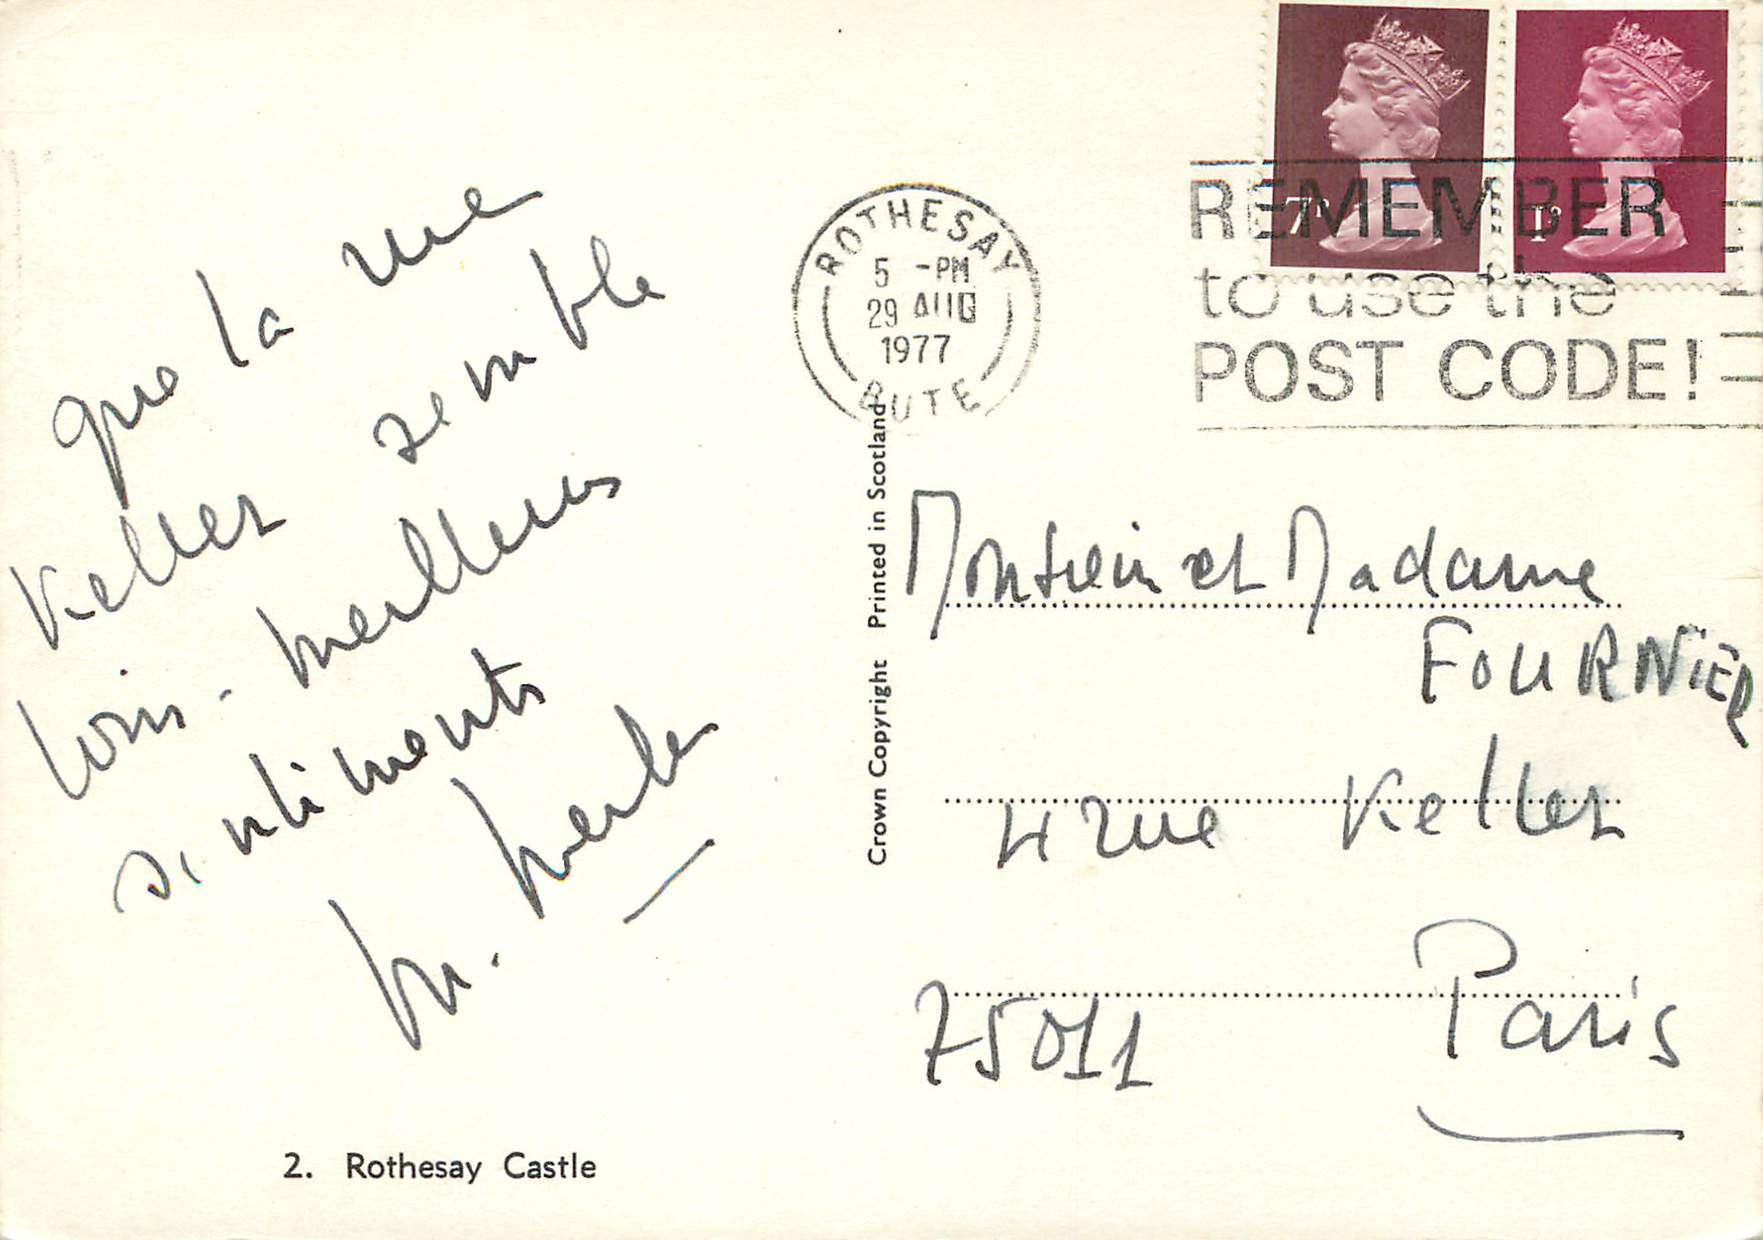 que la rue
Keller semble
loin. meilleurs
sentiments
M.
2. Rothesay Castle
Crown Copyright Printed in Scotland
ROTHESAY
5 -PM
29 AUG
1977
BUTE
7P
1P
REMEMBER
to use the
POST CODE!
Monsieur et Madame
FOURNIER
4 rue Keller
75011 Paris